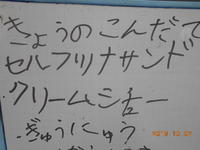 きょうのこんだて
セルフツナサンド
クリームシチー
ぎゅうにゅう